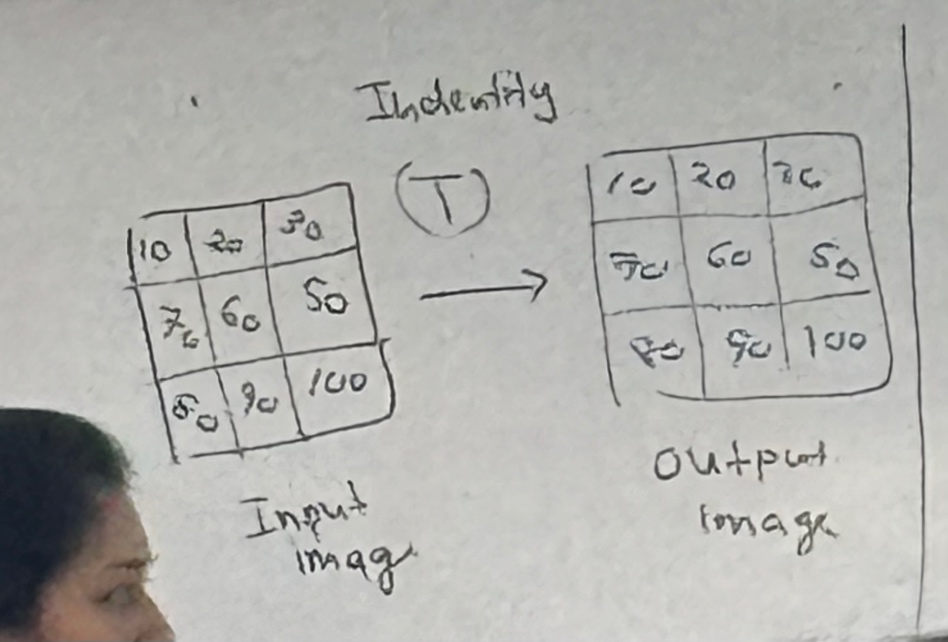 Indentity
T
10 20 30
70 60 50
80 90 100
Input
imag
10 20 30
70 60 50
80 90 100
Output
image